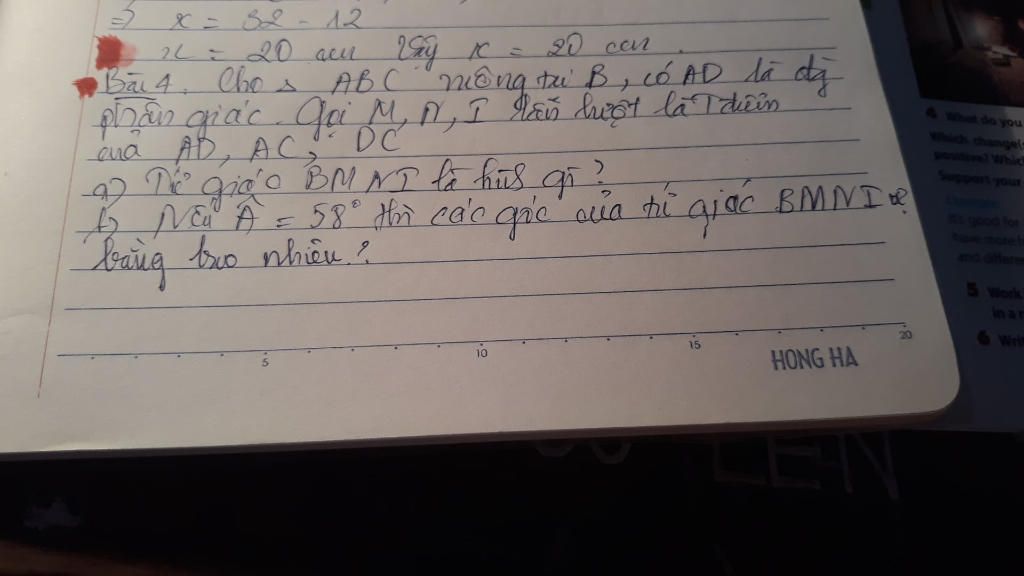 => x = 32 - 12
x = 20 cm Vậy x = 20 cm.
Bài 4. Cho △ ABC vuông tại B, có AD là đg
phân giác. Gọi M, N, I lần lượt là T điểm
của AD, AC, DC
a) Tứ giác BMNI là hình gì?
b) Nếu Â = 58° thì các góc của tứ giác BMNI
bằng bao nhiêu.?
5 10 15 20
HONG HA
4 What do you
Which change(s
positive? Which
Support your
It's good for
have more
and differen
5 Work
in a
6 Writ